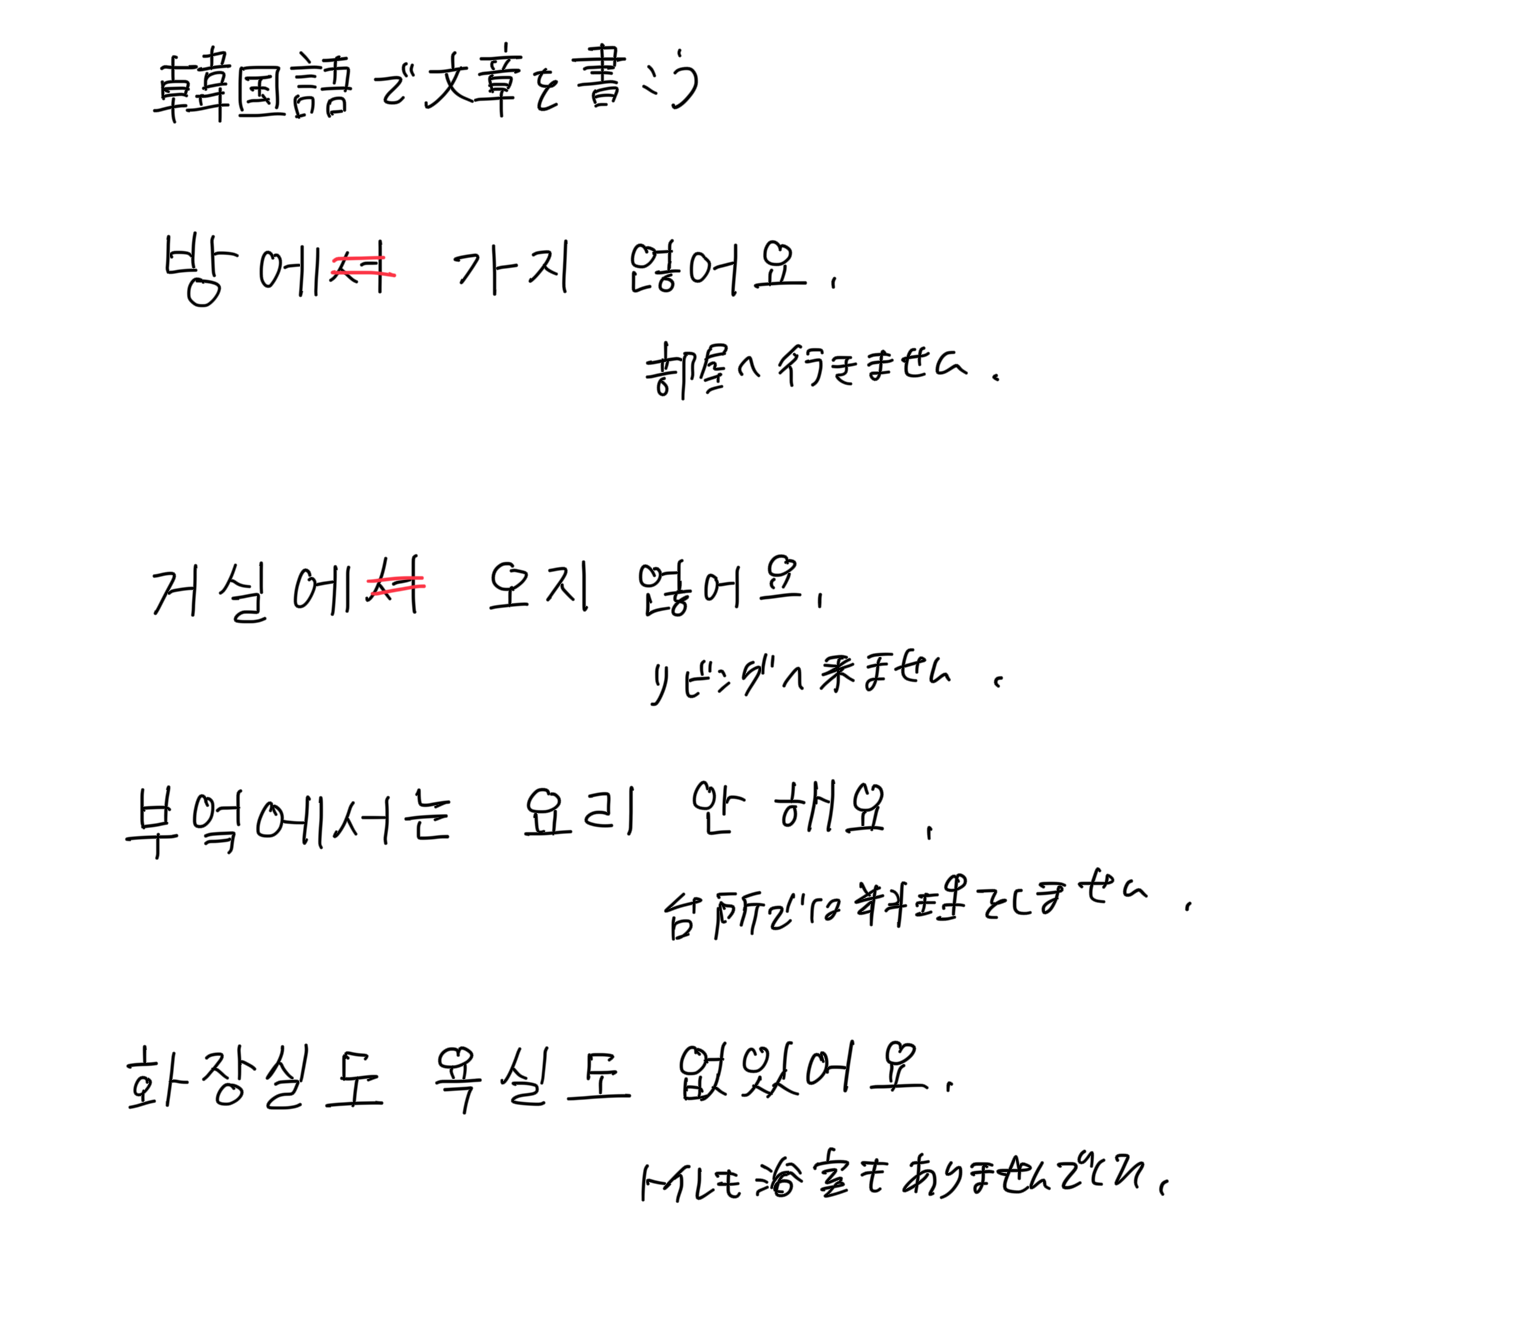 韓国語で文章を書こう
방에서 가지 않어요.
部屋へ行きません.
거실에서 오지 않어요.
リビングへ来ません.
부엌에서는 요리 안 해요.
台所では料理をしません.
화장실도 욕실도 없있어요.
トイレも浴室もありませんでした.